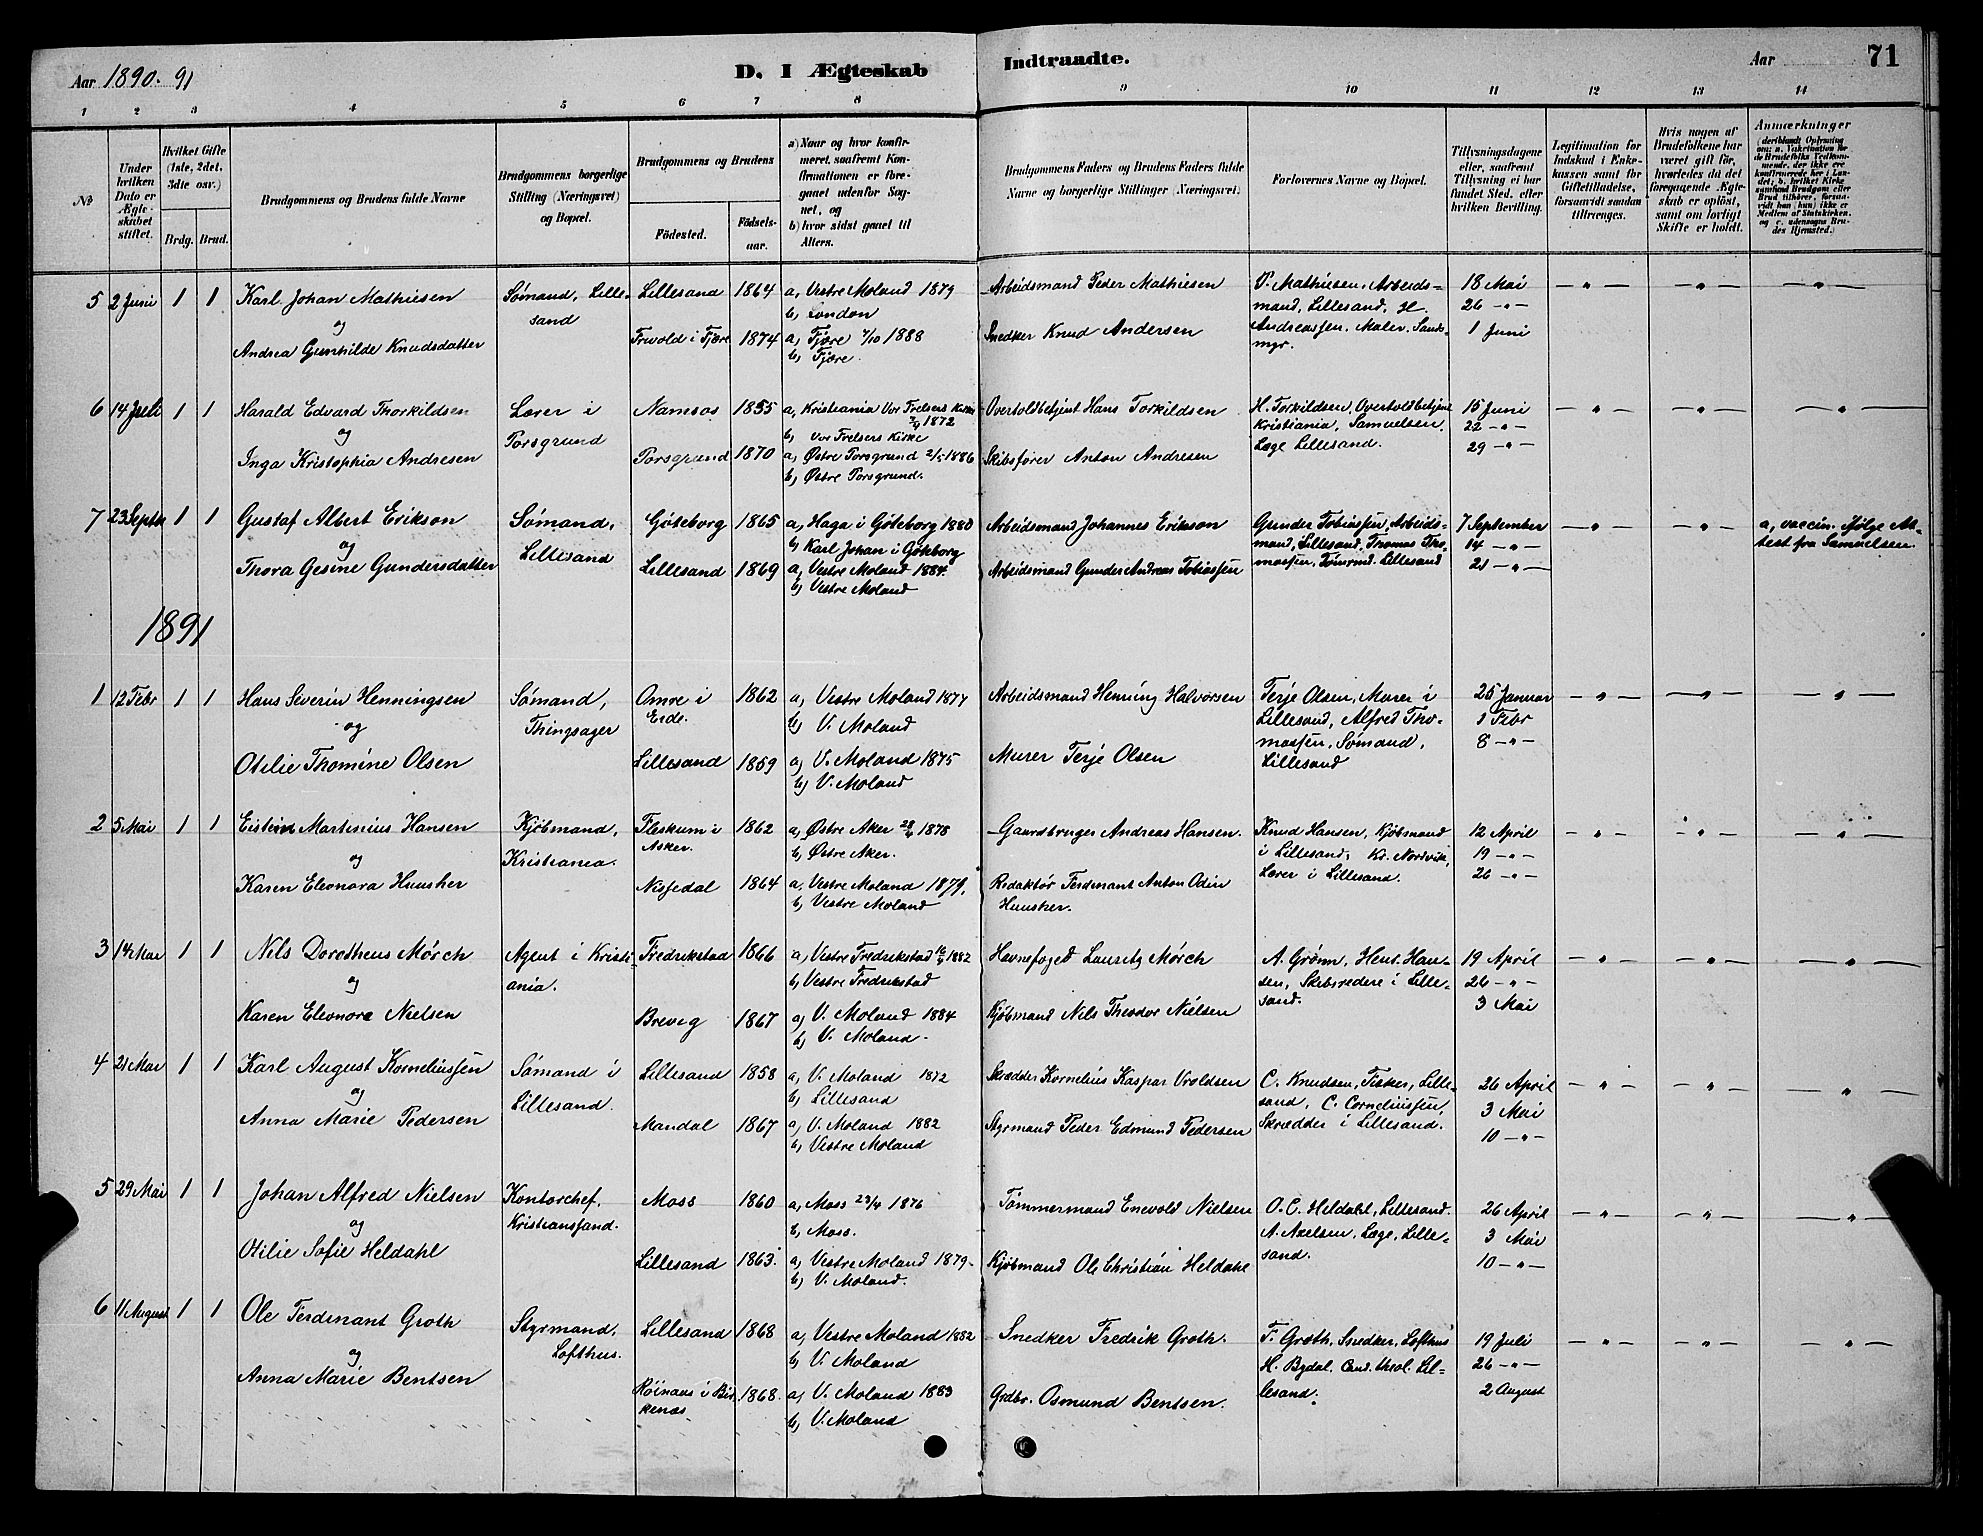 Aar 1890. 91
D. I Ægteskab Indtraadte.
Aar 71
1 2 3 4 5 6 7 8 9 10 11 12 13 14
No
Under hvilken Dato er Ægteskabet stiftet.
Hvilket Gifte (1ste, 2det, 3die osv.)
Brdg. Brud.
Brudgommens og Brudens fulde Navne
Brudgommens borgerlige Stilling (Næringsvei) og Bopæl.
Brudgommens og Brudens
Födested. Födselsaar.
a) Naar og hvor konfirmeret, saafremt Konfirmationen er foregaaet udenfor Sognet, og
b) hvor sidst gaaet til Alters.
Brudgommens Faders og Brudens Faders fulde Navne og borgerlige Stillinger (Næringsvei).
Forlovernes Navne og Bopæl.
Tillysningsdagene eller, saafremt Tillysning ei har fundet Sted, efter hvilken Bevilling.
Legitimation for Indskud i Enkekassen samt for Giftetilladelse, forsaavidt saadan tiltrænges.
Hvis nogen af Brudefolkene har været gift för, hvorledes da det foregaaende Ægteskab er oplöst, samt om lovligt Skifte er holdt.
Anmærkninger
5 2 Juni 1 1 Karl Johan Mathiesen
og
Andrea Gunhilde Knudsdatter
Sømand, Lillesand
Lillesand 1864 a, Vestre Moland 1879
b, London
Frivold i Fjære 1874 a, Fjære 7/10 1888
b, Fjære.
Arbeidsmand Peder Mathiesen
Snedker Knud Andersen
P. Mathiesen, Arbeidsmand, Lillesand, H. Andreassen. Maler. Sandsmyr.
18 Mai
26 -"-
1 Juni
6 14 Juli 1 1 Harald Edvard Thorkildsen
og
Inga Kristophia Andresen
Lærer i Porsgrund
Namsos 1855 a, Kristiania Vor Frelsers Kirke 1872
b, Vor Frelsers Kirke
Porsgrund 1870 a, Østre Porsgrund 1886
b, Østre Porsgrund.
Overtoldbetjent Hans Torkildsen
Skibsfører Anton Andresen
H. Torkildsen, Overtoldbetjent Kristiania, Samuelsen, Læge Lillesand.
15 Juni
22 -"-
29 -"-
7 23 Septbr 1 1 Gustaf Albert Erikson
og
Thora Gesine Gundersdatter
Sømand, Lillesand
Göteborg 1865 a, Haga i Göteborg 1880
b, Karl Johan i Göteborg
Lillesand 1869 a, Vestre Moland 1884.
b, Vestre Moland
Arbeidsmand Johannes Erikson
Arbeidsmand Gunder Andreas Tobiassen
Gunder Tobiassen, Arbeidsmand, Lillesand, Thomas Thomassen, Tømrmd. Lillesand
7 September
14 -"-
21 -"-
a, vaccin. ifølge Attest fra Samuelsen.
1891
1 12 Febr 1 1 Hans Severin Henningsen
og
Otilie Thomine Olsen
Sømand, Thingsager
Omre i Eide. 1862 a, Vestre Moland 1877
b, V. Moland
Lillesand 1859 a, V. Moland 1875
b, V. Moland
Arbeidsmand Henning Halvorsen
Murer Terje Olsen
Terje Olsen, Murer i Lillesand, Alfred Thomassen, Sømand, Lillesand
25 Januar
1 Febr
8 -"-
2 5 Mai 1 1 Eistein Martinius Hansen
og
Karen Eleonora Huusher
Kjøbmand, Kristiania.
Fleskum i Asker. 1862 a, Østre Aker 1878
b, Østre Aker.
Nissedal 1864 a, Vestre Moland 1879.
b, Vestre Moland
Gaardbruger Andreas Hansen.
Redaktør Ferdinant Anton Odin Huusher.
Knud Hansen, Kjøbmand i Lillesand, Kd. Nordvik, Lærer i Lillesand.
12 April
19 -"-
26 -"-
3 14 Mai 1 1 Nils Dorotheus Mørch
og
Karen Eleonore Nielsen
Agent i Kristiania.
Fredrikstad 1866 a, Vestre Fredrikstad 1882
b, Vestre Fredrikstad
Brevig 1867 a, V. Moland 1884
b, V. Moland.
Havnefoged Lauritz Mørch
Kjøbmand Nils Theodor Nielsen
A. Grønn, Henr. Hansen, Skibsredere i Lillesand.
19 April
26 -"-
3 Mai
4 21 Mai 1 1 Karl August Korneliussen
og
Anna Marie Pedersen
Sømand i Lillesand.
Lillesand 1858 a, V. Moland 1872
b, Lillesand
Mandal 1867 a, V. Moland 1882
b, Vestre Moland
Skrædder Kornelius Kaspar Vroldsen
Styrmand Peder Edmund Pedersen
C. Knudsen, Fisker, Lillesand, C. Corneliussen, Skrædder i Lillesand.
26 April
3 Mai
10 -"-
5 29 Mai 1 1 Johan Alfred Nielsen
og
Otilie Sofie Heldahl
Kontorchef, Kristianssand.
Moss 1860 a, Moss 1876
b, Moss.
Lillesand 1863. a, Vestre Moland 1879.
b, V. Moland.
Tømmermand Enevold Nielsen
Kjøbmand Ole Christian Heldahl
O. C. Heldahl, Lillesand.
A. Axelsen, Læge, Lillesand.
26 April
3 Mai
10 -"-
6 11 August 1 1 Ole Ferdinant Groth
og
Anna Marie Bentsen
Styrmand, Lofthus.
Lillesand 1868 a, Vestre Moland 1882
b, V. Moland
Røinaas i Birkenæs 1868. a, V. Moland 1883
b, V. Moland
Snedker Fredrik Groth.
Grdbr. Osmund Bentsen.
F. Groth, Snedker, Lofthus
H. Bydal, Cand. theol. Lillesand.
19 Juli
26 -"-
2 August